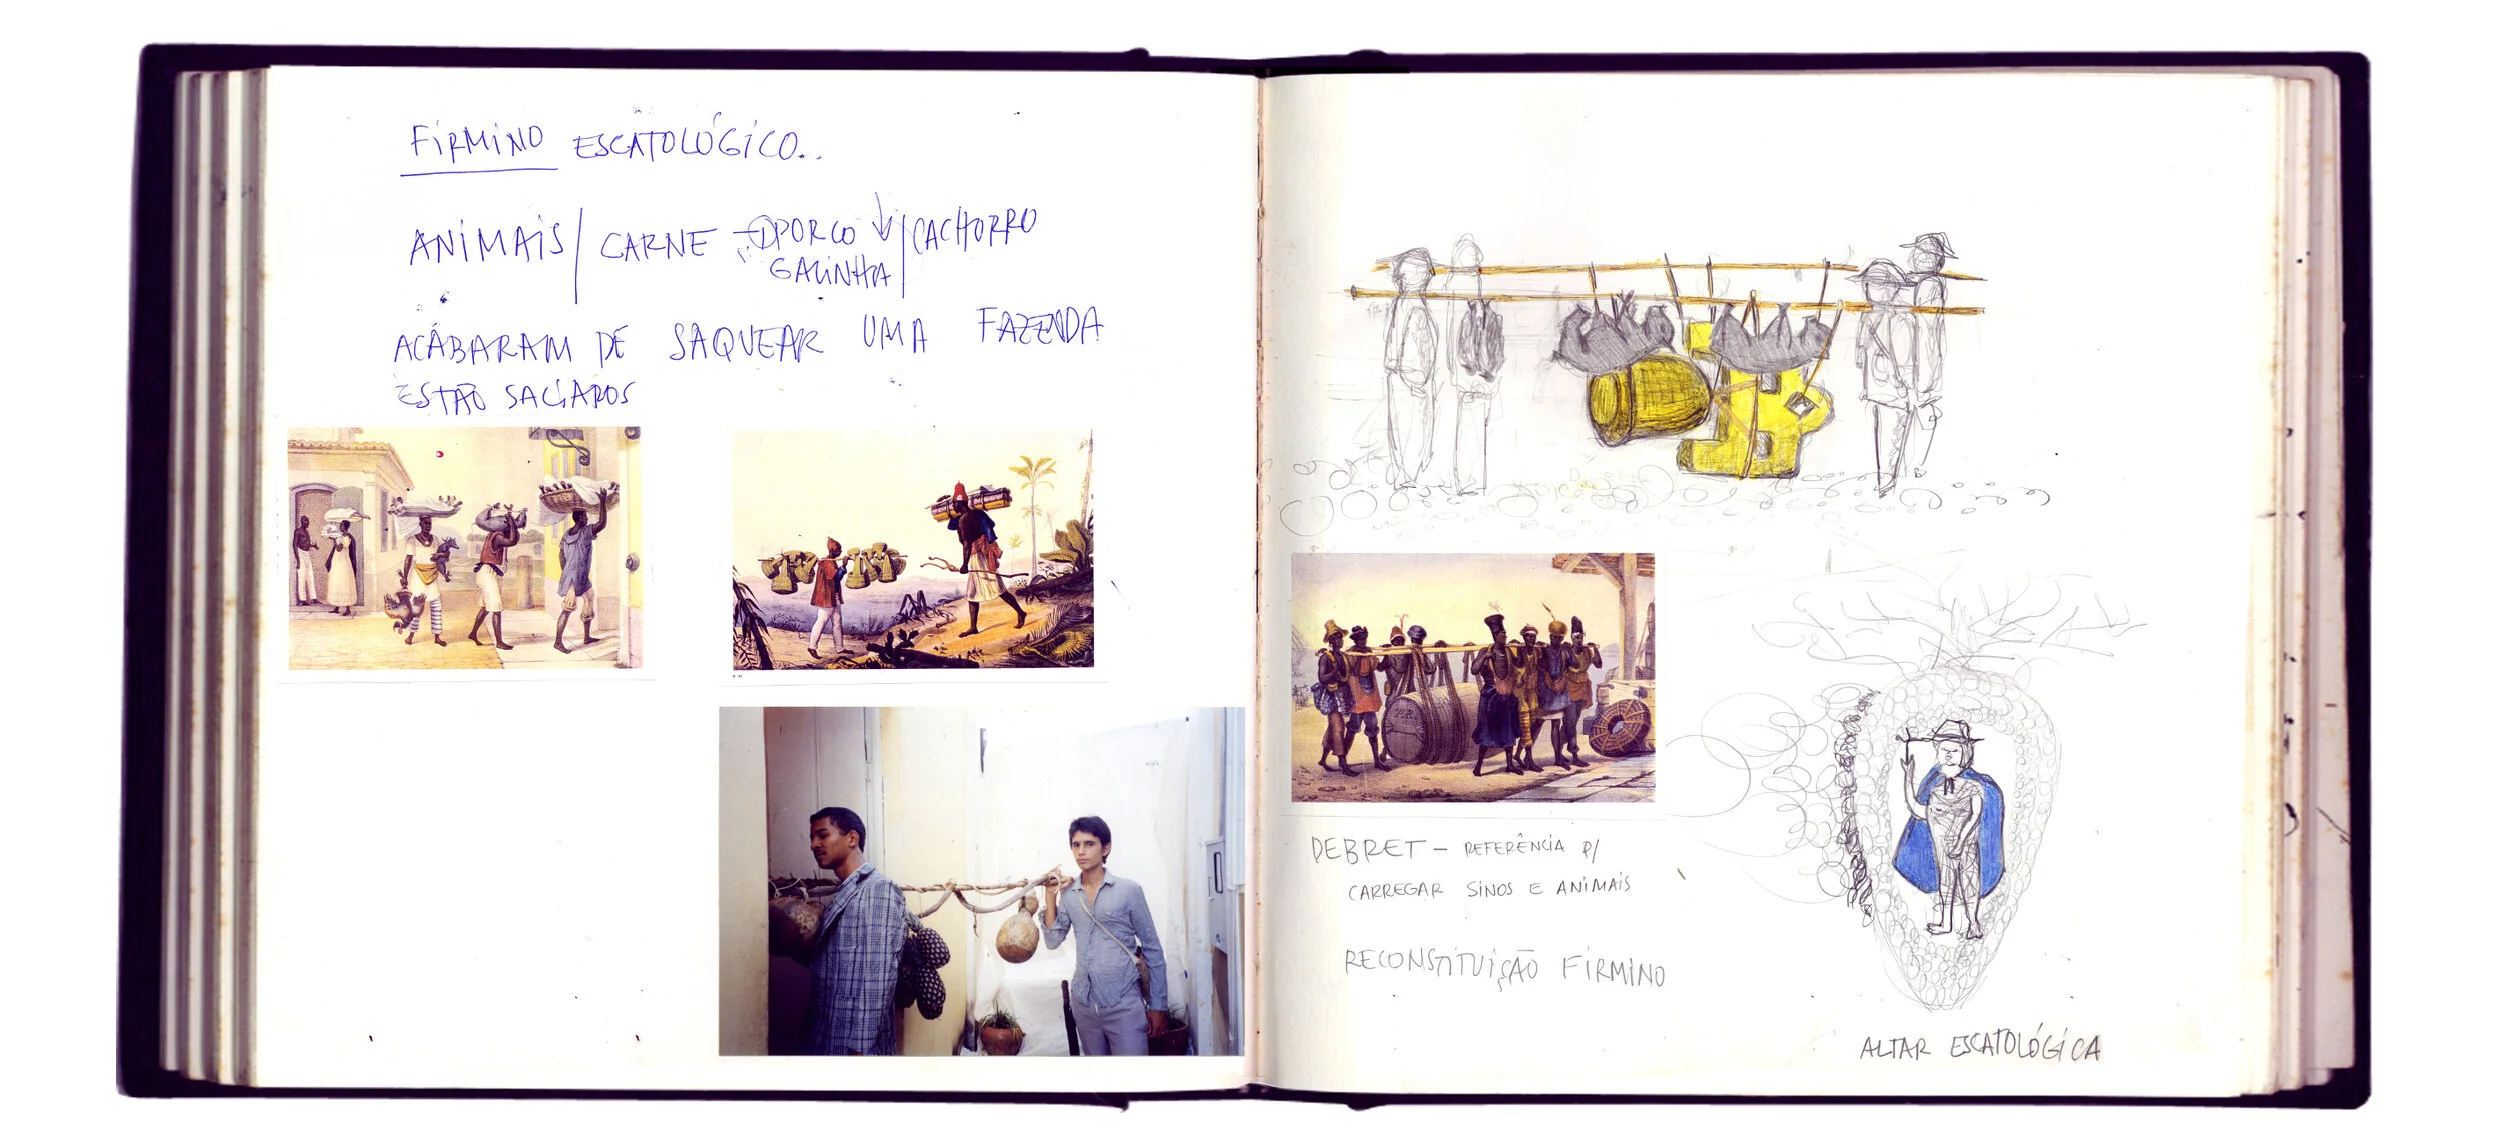 FIRMINO ESCATOLÓGICO..
ANIMAIS / CARNE → PORCO ↓ / CACHORRO
GALINHA
ACÁBARAM DE SAQUEAR UMA FAZENDA
ESTÃO SACIAROS
DEBRET – REFERÊNCIA P/
CARREGAR SINOS E ANIMAIS
RECONSTITUIÇÃO FIRMINO
ALTAR ESCATOLÓGICA